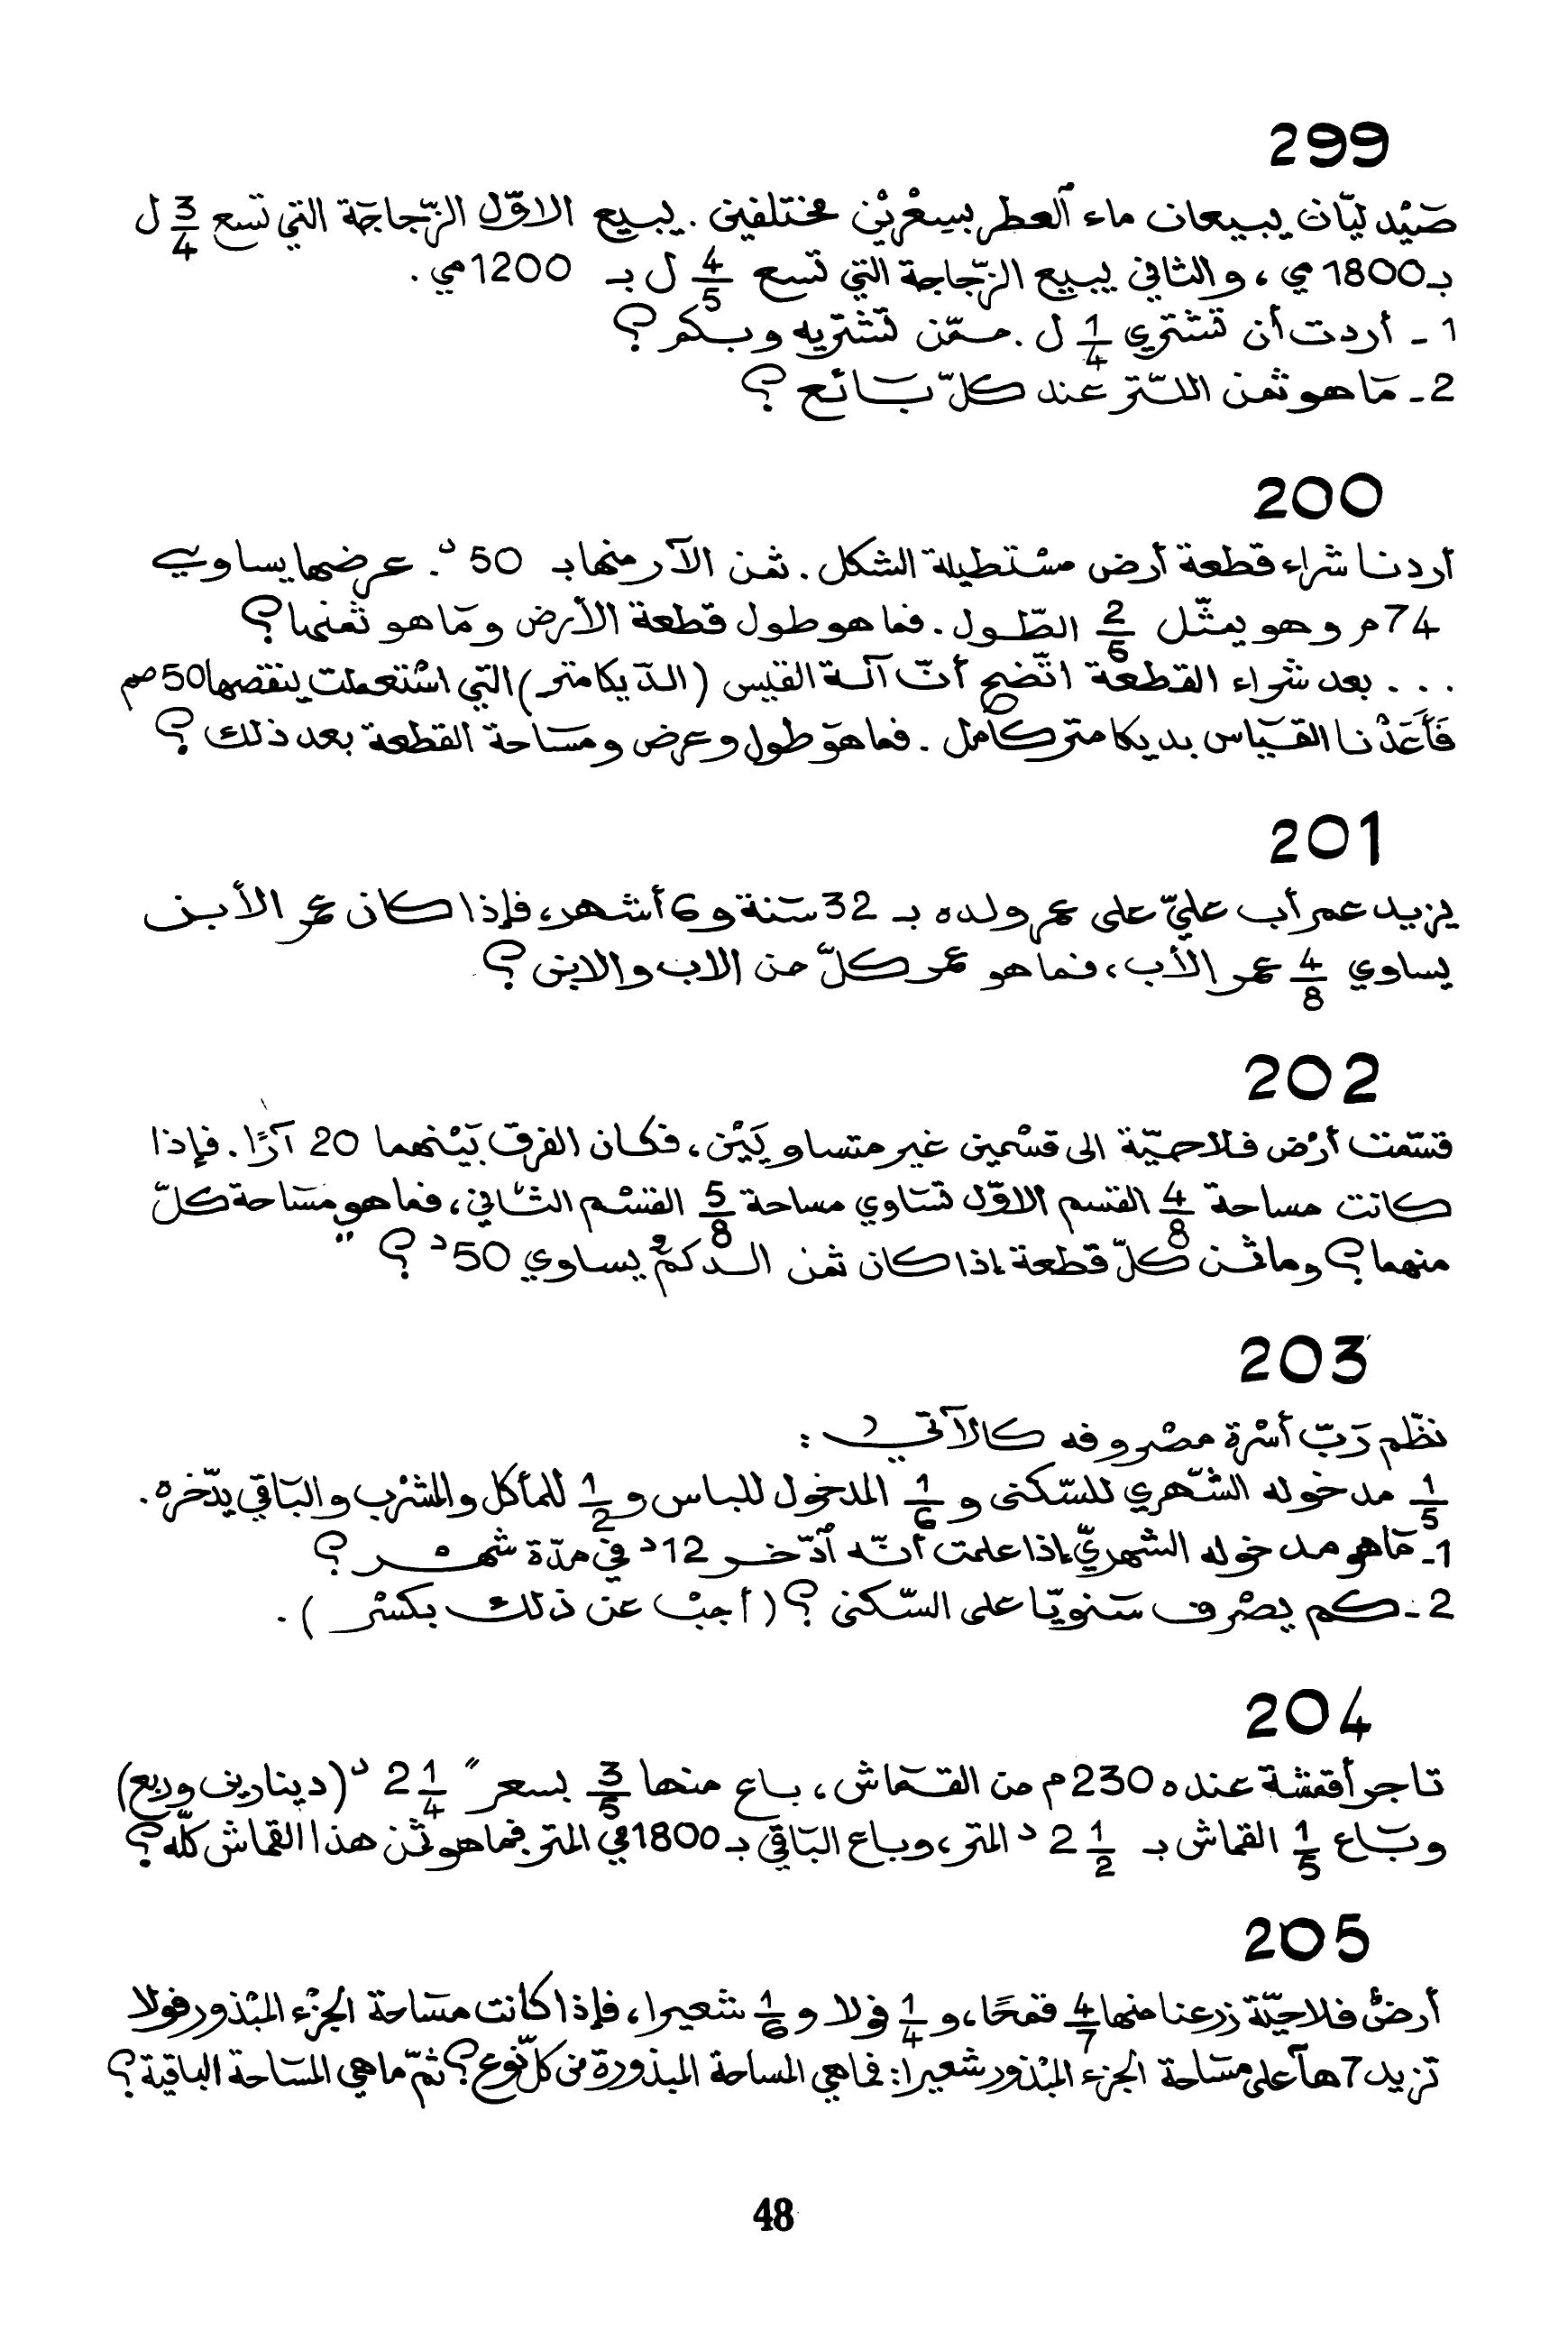 299
صَيْدليّان يبيعان ماء العطر بسِعْريْن مختلفين . يبيع الاوّل الزّجاجَة التي تسع 3/4 ل
بـ1800 مي ، والثاني يبيع الزّجاجة التي تسع 4/5 ل بـ 1200مي .
1 - أردت أن تشتري 1/4 ل . ممّن تشتريه وبكم ؟
2 - مَا هو ثمن اللتر عند كلّ بَائع ؟
200
أردنا شراء قطعة أرض مسْتطيلة الشكل . ثمن الآر منها بـ 50 د . عرضها يساوي
74م وهو يمثّل 2/5 الطّول . فما هو طول قطعة الأرض ومَا هو ثمنها ؟
... بعد شراء القطعة اتّضح أنّ آلة القيس ( الدّيكامتر ) التي اسْتعملت ينقصها 50صم
فَأَعَدْنا القيَاس بديكامتر كامل . فما هوَ طول وعرض ومسَاحة القطعة بعد ذلك ؟
201
يزيد عمر أب عليّ على عمر ولده بـ 32 سَنة و 6 أشهر، فإذا كان عمر الأبن
يساوي 4/8 عمر الأب، فما هو عمر كلّ من الاب والابن ؟
202
قسّمت أرْض فلاحيّة الى قسْمين غير متساويَيْن، فكان الفرق بَيْنهما 20 آرًا . فإذا
كانت مساحة 4/8 القسم الاوّل تسَاوي مساحة 5/8 القسْم الثّاني، فما هو مسَاحة كلّ
منهما ؟ وما ثمن كلّ قطعة إذا كان ثمن الدكمم يساوي 50 د ؟
203
نظّم رَبّ أسْرة مصْروفه كالآتي :
1/5 مدخوله الشّهري للسّكنى و 1/6 المدخول للباس و 1/2 للمأكل والمشْرب والبَاقي يدّخره .
1- مَا هو مدخوله الشهريّ إذا علمت أنّه آدّخر 12د في مدّة شهْر ؟
2- كم يصْرف سَنويّا على السّكنى ؟ ( أجبْ عن ذلك بكسْر ) .
204
تاجر أقمشة عنده 230م من القمَاش ، باع منها 3/5 بسعر 2 1/4 د (دينارين وربع)
وبَاع 1/5 القماش بـ 2 1/2 د المتر، وباع البَاقي بـ 1800مي المتر فما هو ثمن هذا القماش كلّه ؟
205
أرضٌ فلاحيّة زرعنا منها 4/7 قمحًا، و 1/4 فولا و 1/6 شعيرا، فإذا كانت مسَاحة الجزْء المبْذور فولا
تزيد 7 هآ على مسَاحة الجزء المبْذور شعيرا: فما هي المساحة المبذورة من كلّ نوع ؟ ثمّ ما هي المسَاحة الباقية ؟
48